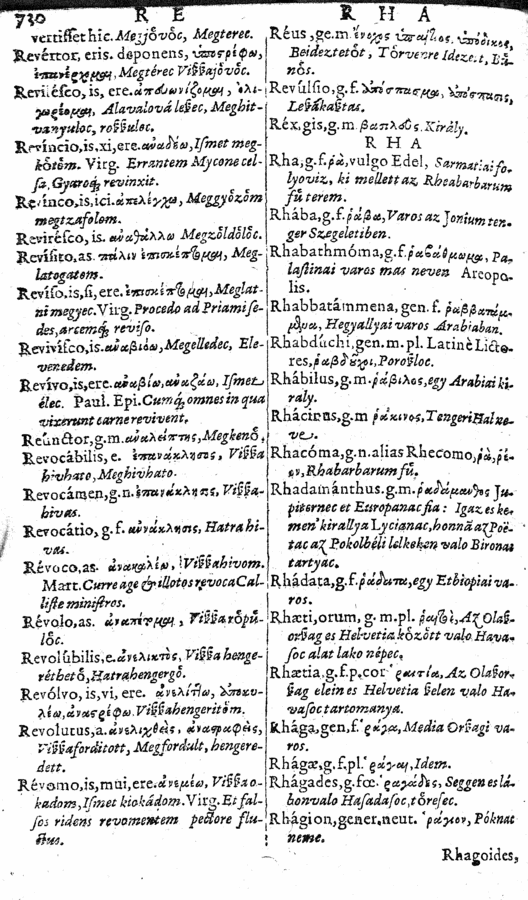 730 R E R H A
vertisset hic. Mezjoͤvoͤc, Megterec.
Revértor, eris. deponens, ὑποςρέφω,
ἐπανέρχομαι, Megtérec Viſſajoͤvoͤc.
Reviléſco, is, ere. Alavalová leſec, Meghit-
vanyuloc, roſſuloc.
Revíncio, is. xi, ere. ἀναδέω, Iſmet meg-
koͤtoͤm. Virg. Errantem Mycone cel-
ſa, Gyaroq́; revinxit.
Revínco, is, ici. ἀπελέγχω, Meggyoͤzoͤm
megtzafolom.
Reviréſco, is. ἀναθάλλω Megzoͤldoͤloͤc.
Revíſito, as. πάλιν ἐπισκέπτομαι, Meg-
latogatem.
Revíſo. is, ſi, ere. ἐπισκέπτομαι, Meglat-
ni megyec. Virg. Procedo ad Priami ſe-
des, arcemq́; reviſo.
Revivíſco, is. ἀναβιόω, Megelledec, Ele-
venedem.
Revívo, is, ere. ἀναβίω, ἀναζάω, Iſmet
élec. Paul. Epi. Cumq́; omnes in qua
vixerunt carne revivent.
Reúnctor, g. m. ἀναλείπτης, Megkenoͤ.
Revocábilis, e. ἐπανάκλητος, Viſſa
hivhato, Meghivhato.
Revocámen, g. n. ἐπανάκλησις, Viſſa-
hivas.
Revocátio, g. f. ἀνάκλησις, Hatra hi-
vas.
Révoco, as. ἀνακαλέω, Viſſahivom.
Mart. Curre age & illotos revoca Cal-
liſte miniſtros.
Révolo, as. Viſſa roͤpuͤ-
loͤc.
Revolúbilis, e. ἀνελικτὸς, Viſſa henge-
réthetoͤ, Hatrahengergoͤ.
Revólvo, is, vi, ere. ἀνελίττω, ἀποκυ-
λέω, ἀναςρέφω. Viſſahengeritoͤm.
Revolutus, a. ἀνελιχθεὶς, ἀναςραφεὶς,
Viſſaforditott, Megfordult, hengere-
dett.
Révomo, is, mui, ere. ἀνεμέω, Viſſa o-
kadom, Iſmet kiokádom. Virg. Et fal-
ſos ridens revomentem pectore flu-
ctus.
Réus, ge. m. ἔνοχος ὑπαίτιος. ὑπόδικος,
Beideztetoͤt, Toͤrvenre Idezet, Buͤ-
noͤs.
Revúlſio, g. f. ἀπόσπασμα, ἀπόσπασις,
Leſákaſtas.
Réx, gis, g. m. βασιλεύς. Király.
R H A
Rha, g. f. ῥὰ, vulgo Edel, Sarmatiai fo-
lyoviz, ki mellett az Rheabarbarum
fuͤ terem.
Rhába, g. f. ῥάβα, Varos az Jonium ten-
ger Szegeletiben.
Rhabathmóma, g. f. ῥαβάθμωμα, Pa-
laſtinai varos mas neven Areopo-
lis.
Rhabbatámmena, gen. f. Hegyallyai varos Arabiaban.
Rhabdúchi, gen. m. pl. Latinè Licto-
res, ῥαβδοῦχοι, Poroſloc.
Rhábilus, g. m. ῥάβιλος, egy Arabiai ki-
raly.
Rhácinus, g. m ῥάκινος, Tengeri Hal ne-
ve.
Rhacóma, g. n. alias Rhecomo, ῥὰ, ῥέ-
ον, Rhabarbarum fuͤ.
Rhadamánthus. g. m. ῥαδάμανθος Ju-
piternec et Europanac fia: Igaz es ke-
men' kirallya Lycianac, honnā az Poë-
tac az Pokolbéli lelkeken valo Bironac
tartyac.
Rhádata, g. f. ῥάδατα, egy Ethiopiai va-
ros.
Rhæti, orum, g. m. pl. ῥαιτοὶ, Az Olaſ-
orſag es Helvetia koͤzoͤtt valo Hava-
ſoc alat lako népec.
Rhætia, g. f. p. cor ῥαιτία, Az Olaſor-
ſag elein es Helvetia ſelen valo Ha-
vaſoc tartomanya.
Rhága, gen, f. ῥάγα, Media Orſagi va-
ros.
Rhágæ, g. f. pl. ῥάγαι, Idem.
Rhágades, g. fœ. ῥαγάδες, Seggen es lá-
bon valo Haſadaſoc, toͤreſec.
Rhágion, gener. neut. ῥάγιον, Póknat
neme.
Rhagoides,